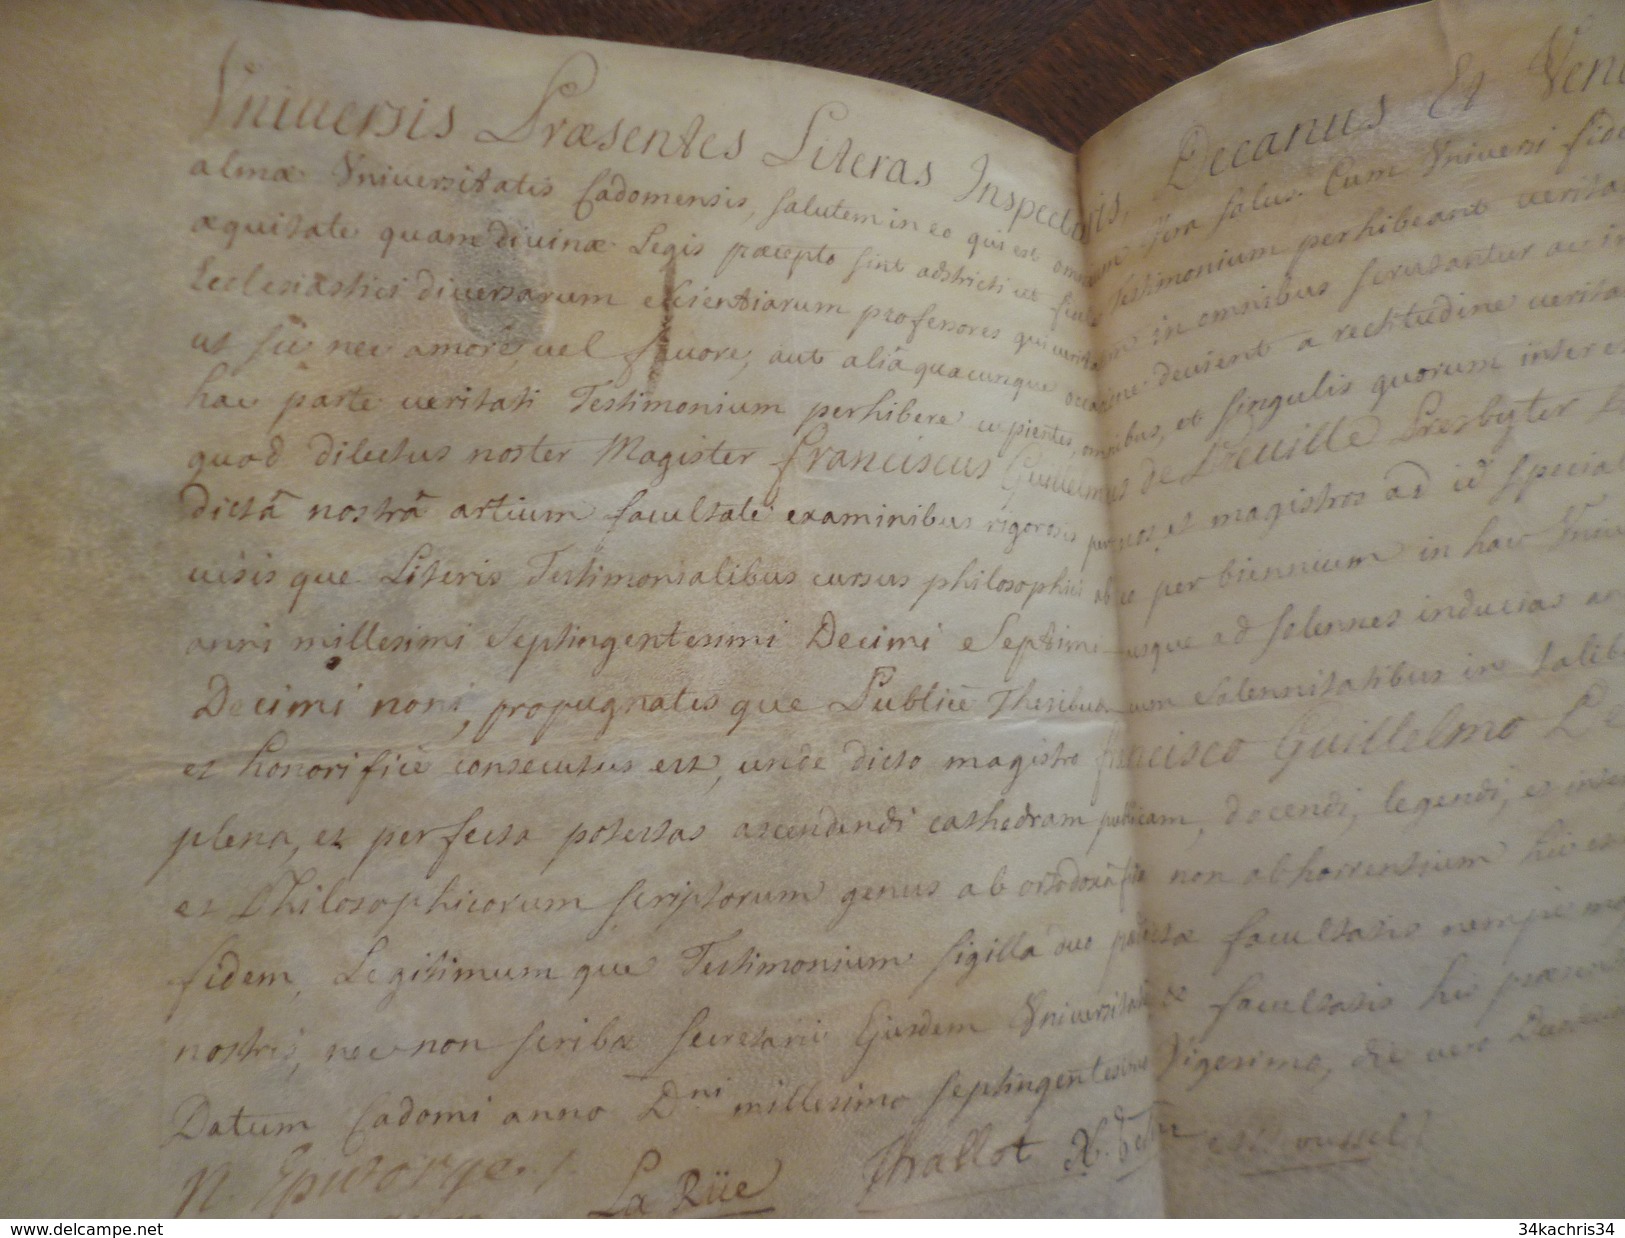 Vniuersis Præsentes Literas Inspecturis, Decanus Et Vene
almæ Vniuersitatis Cadomensis, salutem in eo qui est omnium vera salus. Cum Vniuersi fide
æquitate quam diuinæ Legis præcepto sint adstricti ut Testimonium perhibeant verita
Ecclesiastici diuersarum scientiarum professores qui in omnibus scrutantur ac
ut sic nec amore, vel fauore, aut aliâ quacunque occasione deuient a rectitudine verita
hac parte veritati Testimonium perhibere cupientes, omnibus, et singulis quorum interes
quod dilectus noster Magister Franciscus Guillelmus de Presbyter
dictâ nostrâ artium facultate examinibus rigorosis per nos et magistros ad id special
uisis que Literis Testimonialibus cursus philosophici ab eo per biennium in hac Vniu
anni millesimi Septingentesimi Decimi Septimi usque ad solennes inducias an
Decimi noni, propugnatis que Publicè Thesibus cum Solennitatibus in talib
et honorificè consecutus est, unde dicto magistro francisco Guillelmo Le
plena, et perfecta potestas ascendendi cathedram publicam, docendi, legendi, et inter
et Philosophicorum scriptorum genus ab ortodoxâ fide non abhorrentium hic et
fidem, Legitimum que Testimonium sigilla duo præfatæ facultatis nempè
nostris, nec non scribæ secretarii Ejusdem Vniversitatis et facultatis hic præsent
Datum Cadomi anno Dni millesimo septingentesimo Vigesimo, die vero
La Rüe Thallot
www.delcampe.net
34kachris34